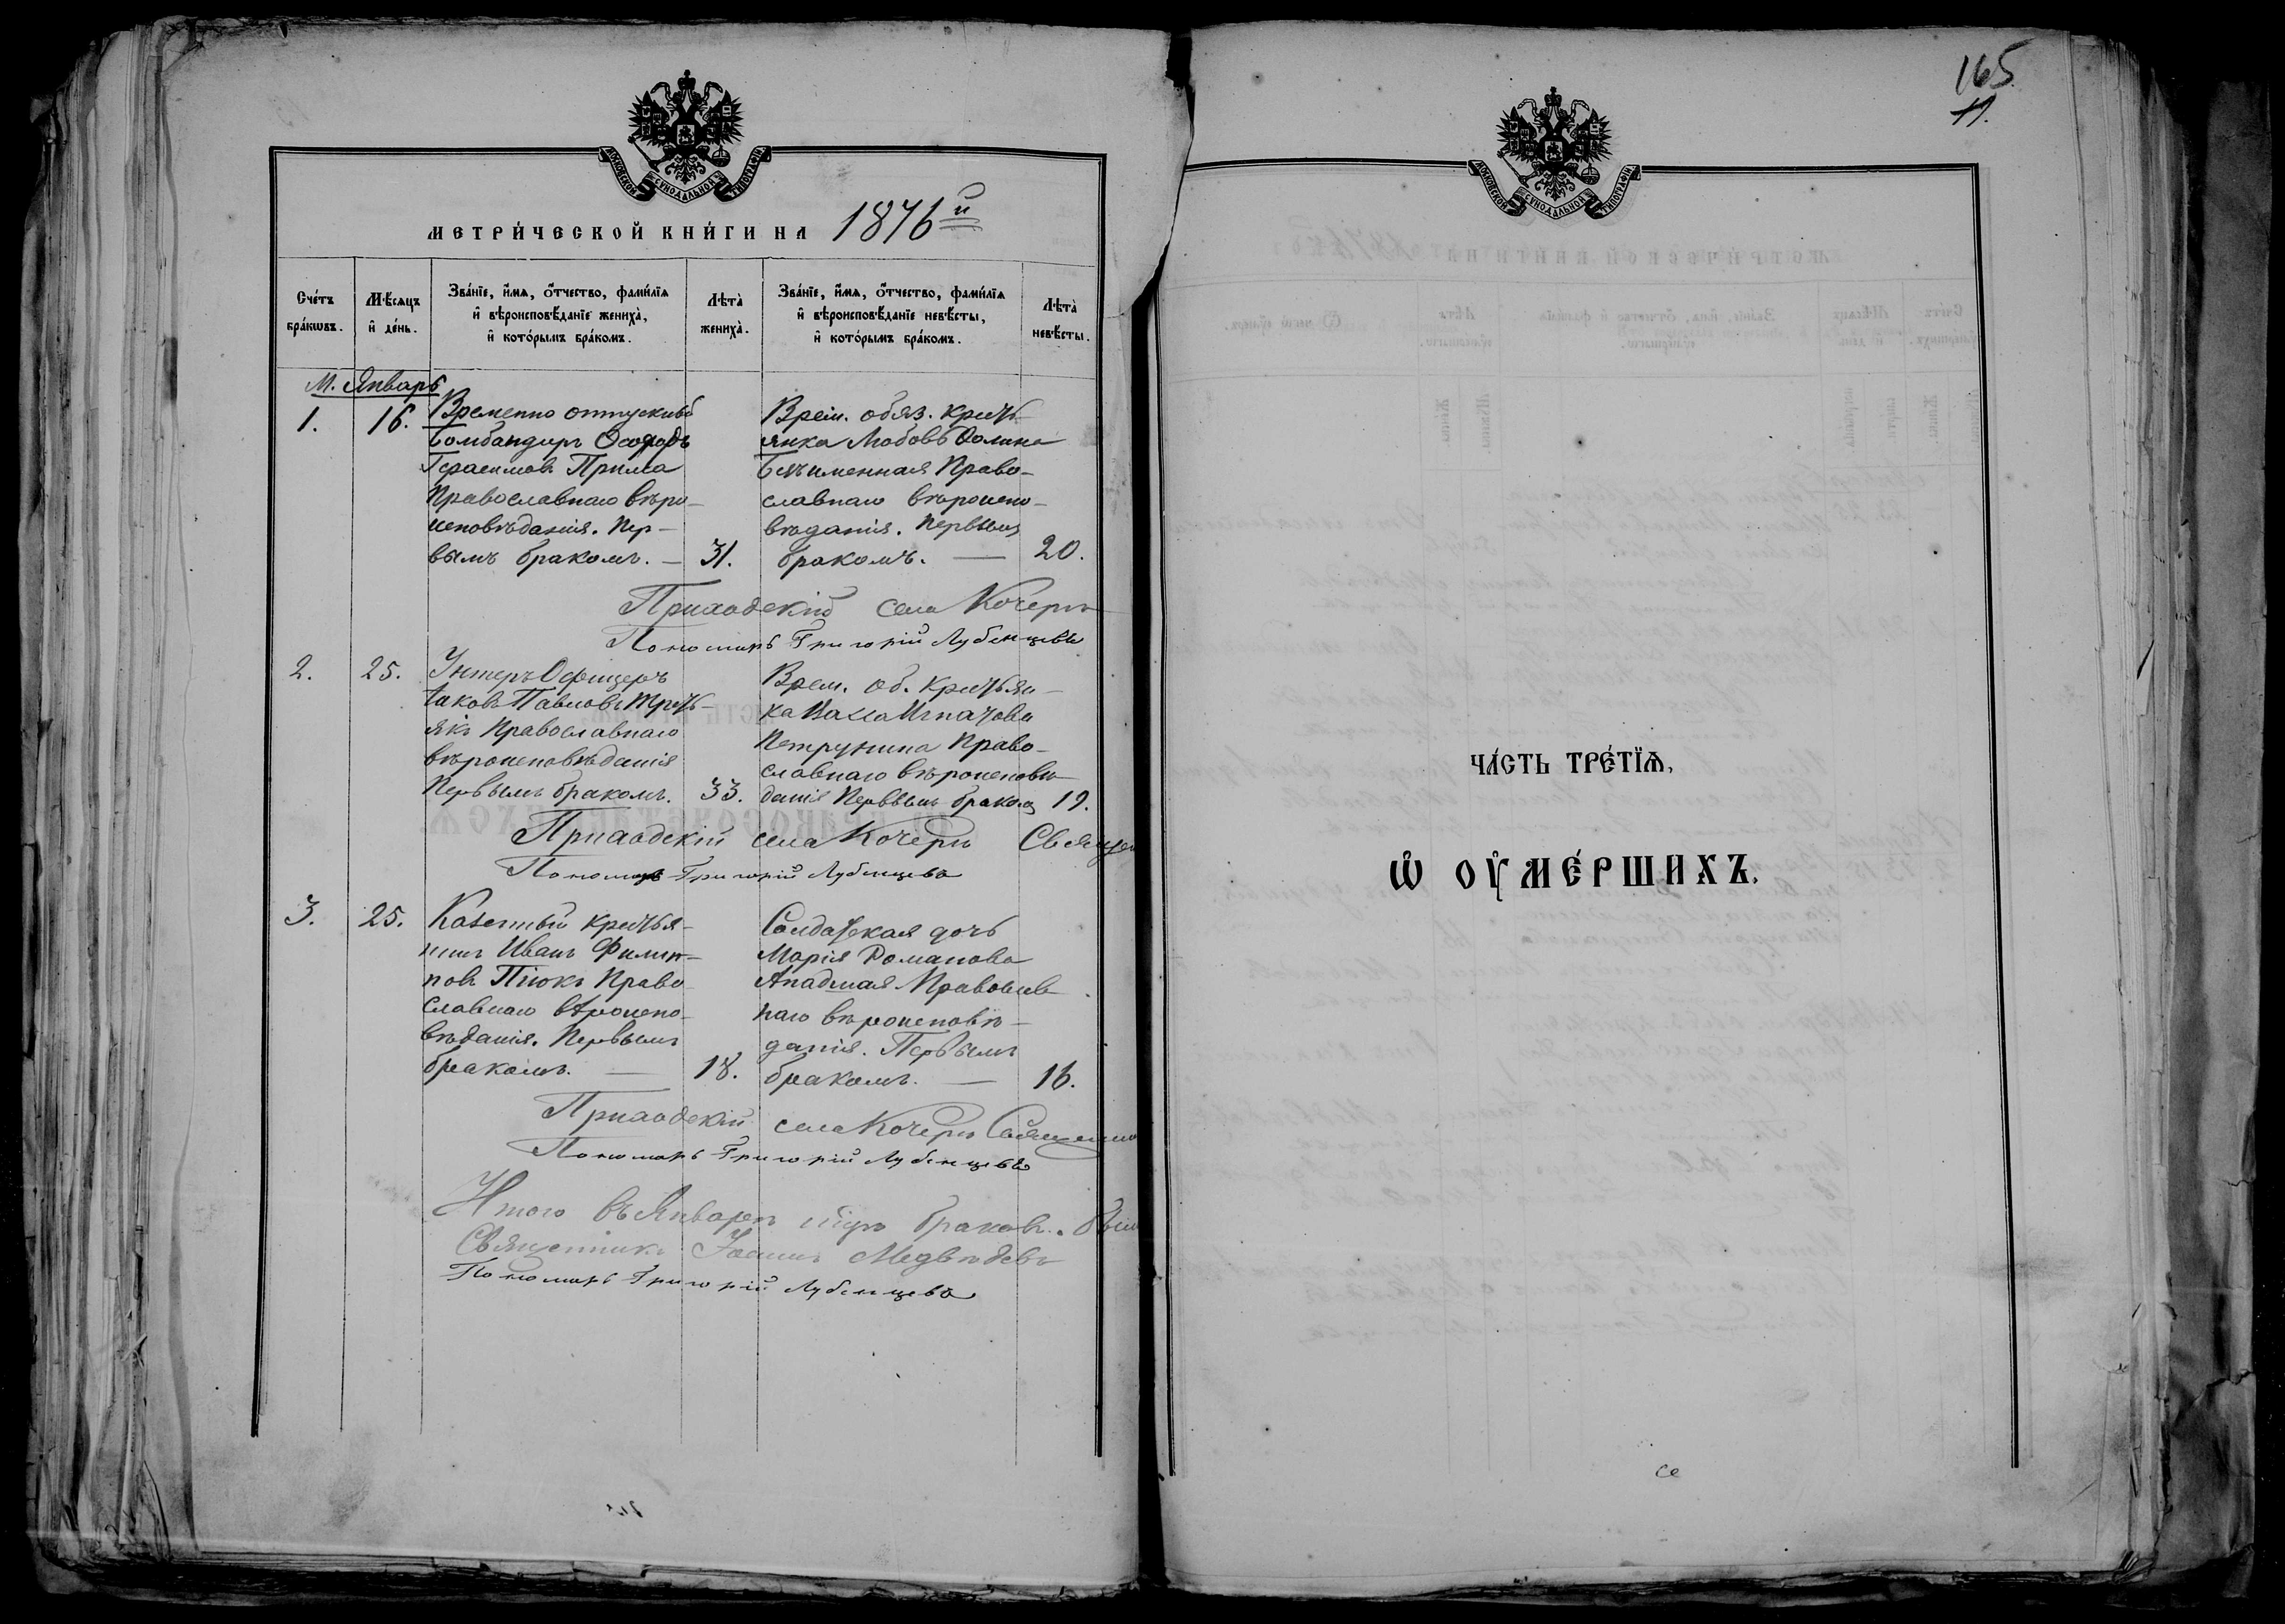 165
11.
МОСКОВСКОЙ СѴНОДАЛЬНОЙ ТИПОГРАФІИ
МЕТРИ́ЧЕСКОЙ КНИ́ГИ НА 1876й
Сче́тъ бра́кѡвъ.
Мѣ́сяцъ и҆ де́нь.
Зва́нїе, и҆́мѧ, ѻ҆́тчество, фами́лїѧ
и҆ вѣроисповѣ́данїе жениха̀,
и҆ кото́рымъ бра́комъ.
Лѣта̀ жениха̀.
Зва́нїе, и҆́мѧ, ѻ҆́тчество, фами́лїѧ
и҆ вѣроисповѣ́данїе невѣ́сты,
и҆ кото́рымъ бра́комъ.
Лѣта̀ невѣ́сты.
М. Январь
1.
16.
Временно отпускной
Бомбандиръ
Герасимовъ Прима
Православнаго вѣро-
исповѣданія. Пер-
вымъ бракомъ. — 31.
Врем. обяз. кресть-
янка Любовь
Православнаго вѣроиспо-
вѣданія. Первымъ
бракомъ. — 20.
Приходскій села Кочеръ
Пономарь Григорій Лубенцевъ
2.
25.
Унтеръ Офицеръ
Іаковъ Павловъ Треть-
якъ Православнаго
вѣроисповѣданія
Первымъ бракомъ. 33.
Врем. об. крестьян-
ка Васса Игнатова
Петрунина Право-
славнаго вѣроисповѣ-
данія Первымъ бракомъ 19.
Приходскій села Кочеръ Священ
Пономарь Григорій Лубенцевъ
3.
25.
Казенный крестья-
нинъ Иванъ Филип-
повъ Право-
славнаго вѣроиспо-
вѣданія. Первымъ
бракомъ. — 18.
Солдатская дочь
Марія Романова
Православ
наго вѣроисповѣ-
данія. Первымъ
бракомъ. — 16.
Приходскій села Кочеръ Священно
Пономарь Григорій Лубенцевъ
Итого въ Январѣ браковъ
Священникъ Іоаннъ Медвѣдевъ
Пономарь Григорій Лубенцевъ
МОСКОВСКОЙ СѴНОДАЛЬНОЙ ТИПОГРАФІИ
ЧА́СТЬ ТРЕ́ТЇѦ,
Ѡ҆ ОУ҆МЕ́РШИХЪ.